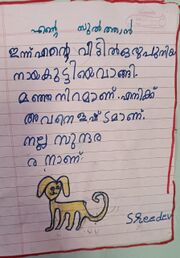 എന്റെ സുൽത്താൻ
ഇന്ന് എന്റെ വീട്ടിൽ ഒരു പുതിയ
നായകുട്ടിയെ വാങ്ങി.
മഞ്ഞ നിറമാണ്. എനിക്ക്
അവനെ ഇഷ്ടമാണ്.
നല്ല സുന്ദര
രനാണ്
Sreedev